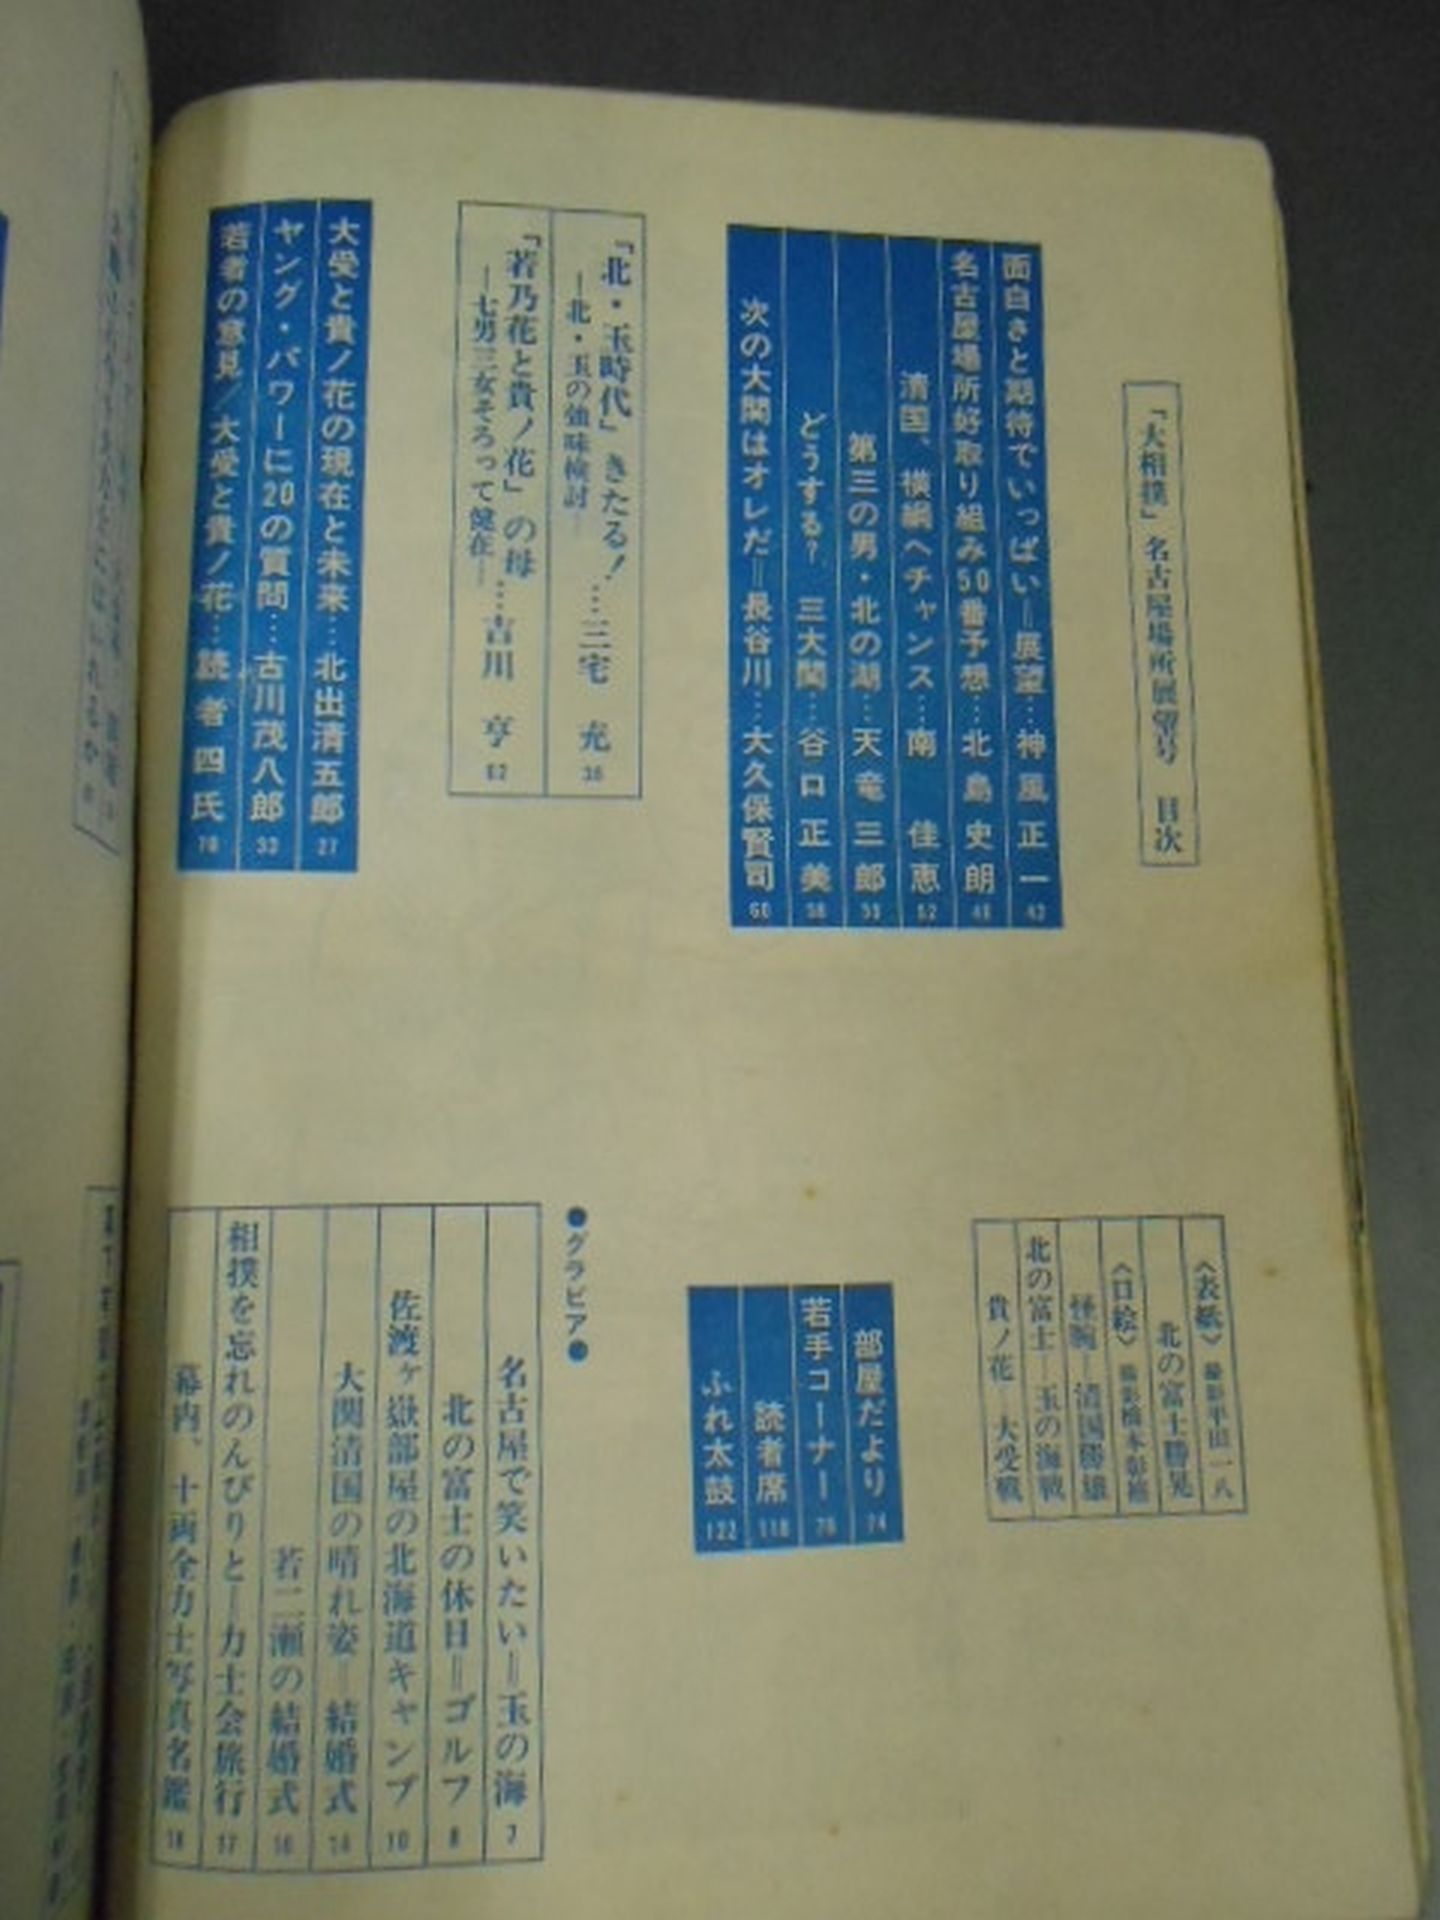 「大相撲」名古屋場所展望号 目次
面白さと期待でいっぱい=展望…神風正一 42
名古屋場所好取り組み50番予想…北島史朗 48
清国、横綱へチャンス…南佳恵 52
第三の男・北の湖…天竜三郎 55
どうする?三大関…谷口正美 58
次の大関はオレだ=長谷川…大久保賢司 60
「北・玉時代」きたる!…三宅充 36
―北・玉の強味検討―
「若乃花と貴ノ花」の母…吉川亨 62
―七男三女そろって健在―
大受と貴ノ花の現在と未来…北出清五郎 27
ヤング・パワーに20の質問…古川茂八郎 33
若者の意見/大受と貴ノ花…読者四氏 78
〈表紙〉撮影平田一八
北の富士勝晃
〈口絵〉撮影橋本彰雄
怪腕―清国勝雄
北の富士―玉の海戦
貴ノ花 大受戦
部屋だより 74
若手コーナー 76
読者席 118
ふれ太鼓 122
●グラビア●
名古屋で笑いたい=玉の海 7
北の富士の休日=ゴルフ 8
佐渡ヶ嶽部屋の北海道キャンプ 10
大関清国の晴れ姿=結婚式 14
若二瀬の結婚式 16
相撲を忘れのんびりと―力士会旅行 17
幕内、十両全力士写真名鑑 18